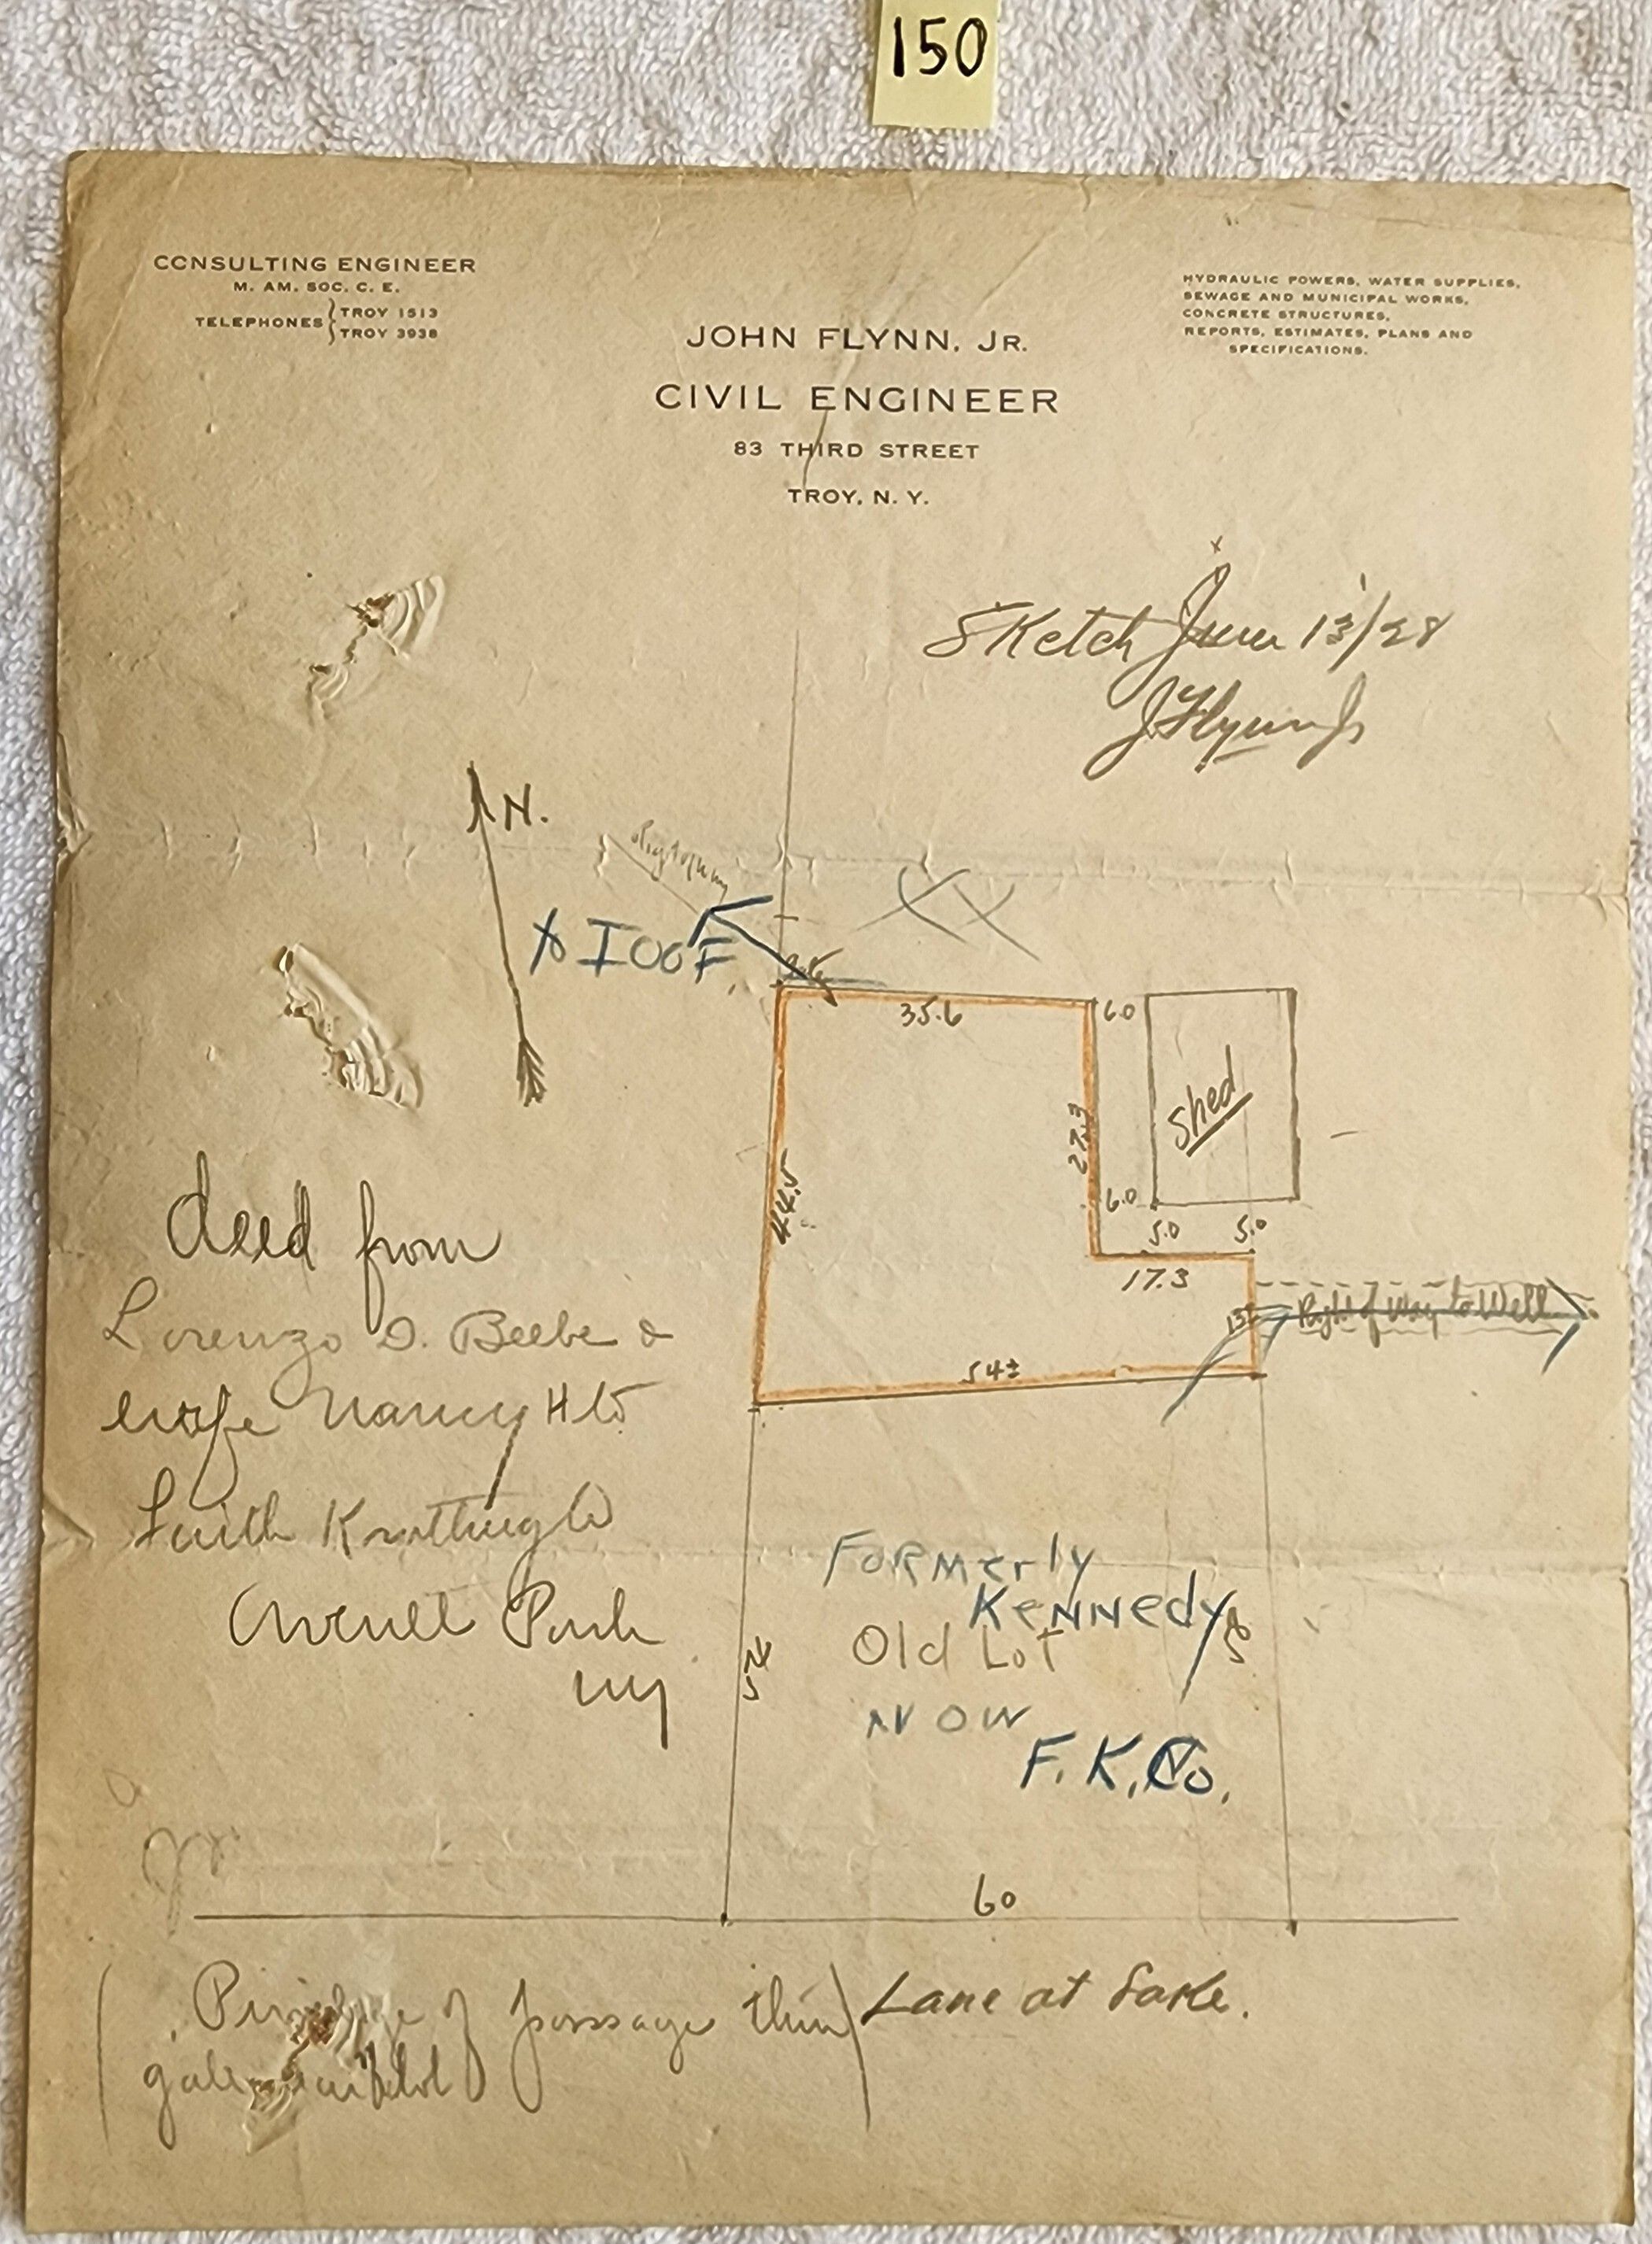 150
CONSULTING ENGINEER
M. AM. SOC. C. E.
TELEPHONES { TROY 1513
TROY 3938
HYDRAULIC POWERS, WATER SUPPLIES,
SEWAGE AND MUNICIPAL WORKS,
CONCRETE STRUCTURES,
REPORTS, ESTIMATES, PLANS AND
SPECIFICATIONS.
JOHN FLYNN, JR.
CIVIL ENGINEER
83 THIRD STREET
TROY, N. Y.
Sketch June 13/28
J Flynn Jr
N.
XX
X IOOF.
35.6
6.0
Shed
27.3
44.5
6.0
5.0
5.0
17.3
Right of Way to Well
54±
deed from
Lorenzo D. Beebe &
wife Nancy H to
Faith Knitting Co
Averill Park
NY
Formerly
Kennedy
Old Lot
Now
F. K. Co.
60
(Privilege of passage thru)
Lane at Lake.